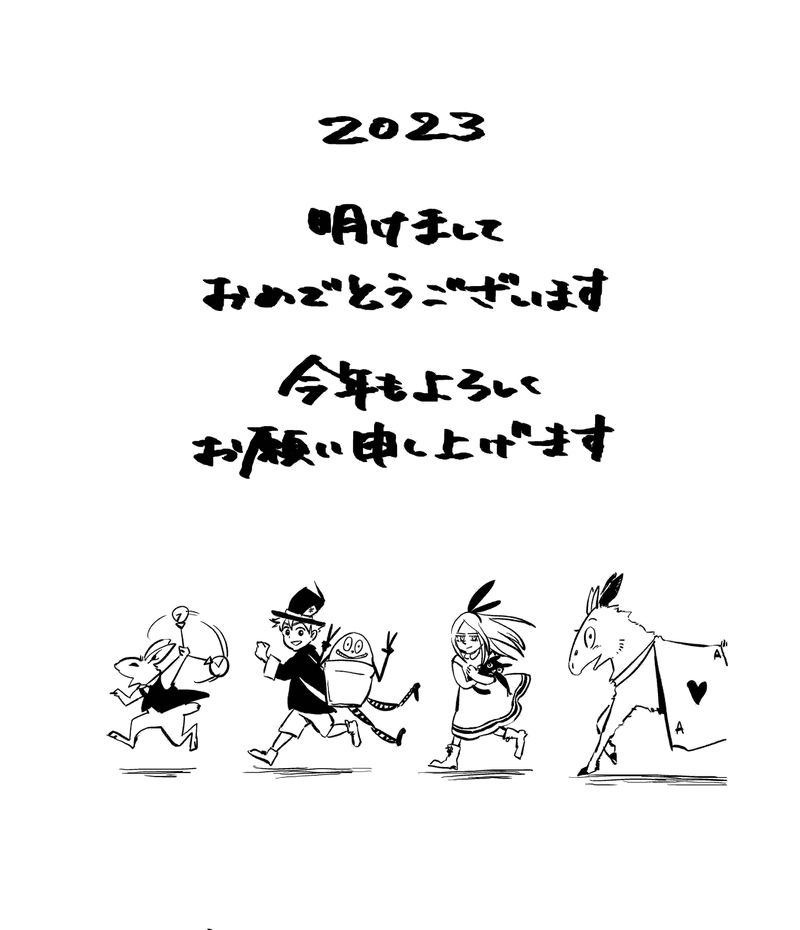 2023
明けまして
おめでとうございます
今年もよろしく
お願い申し上げます
A
A